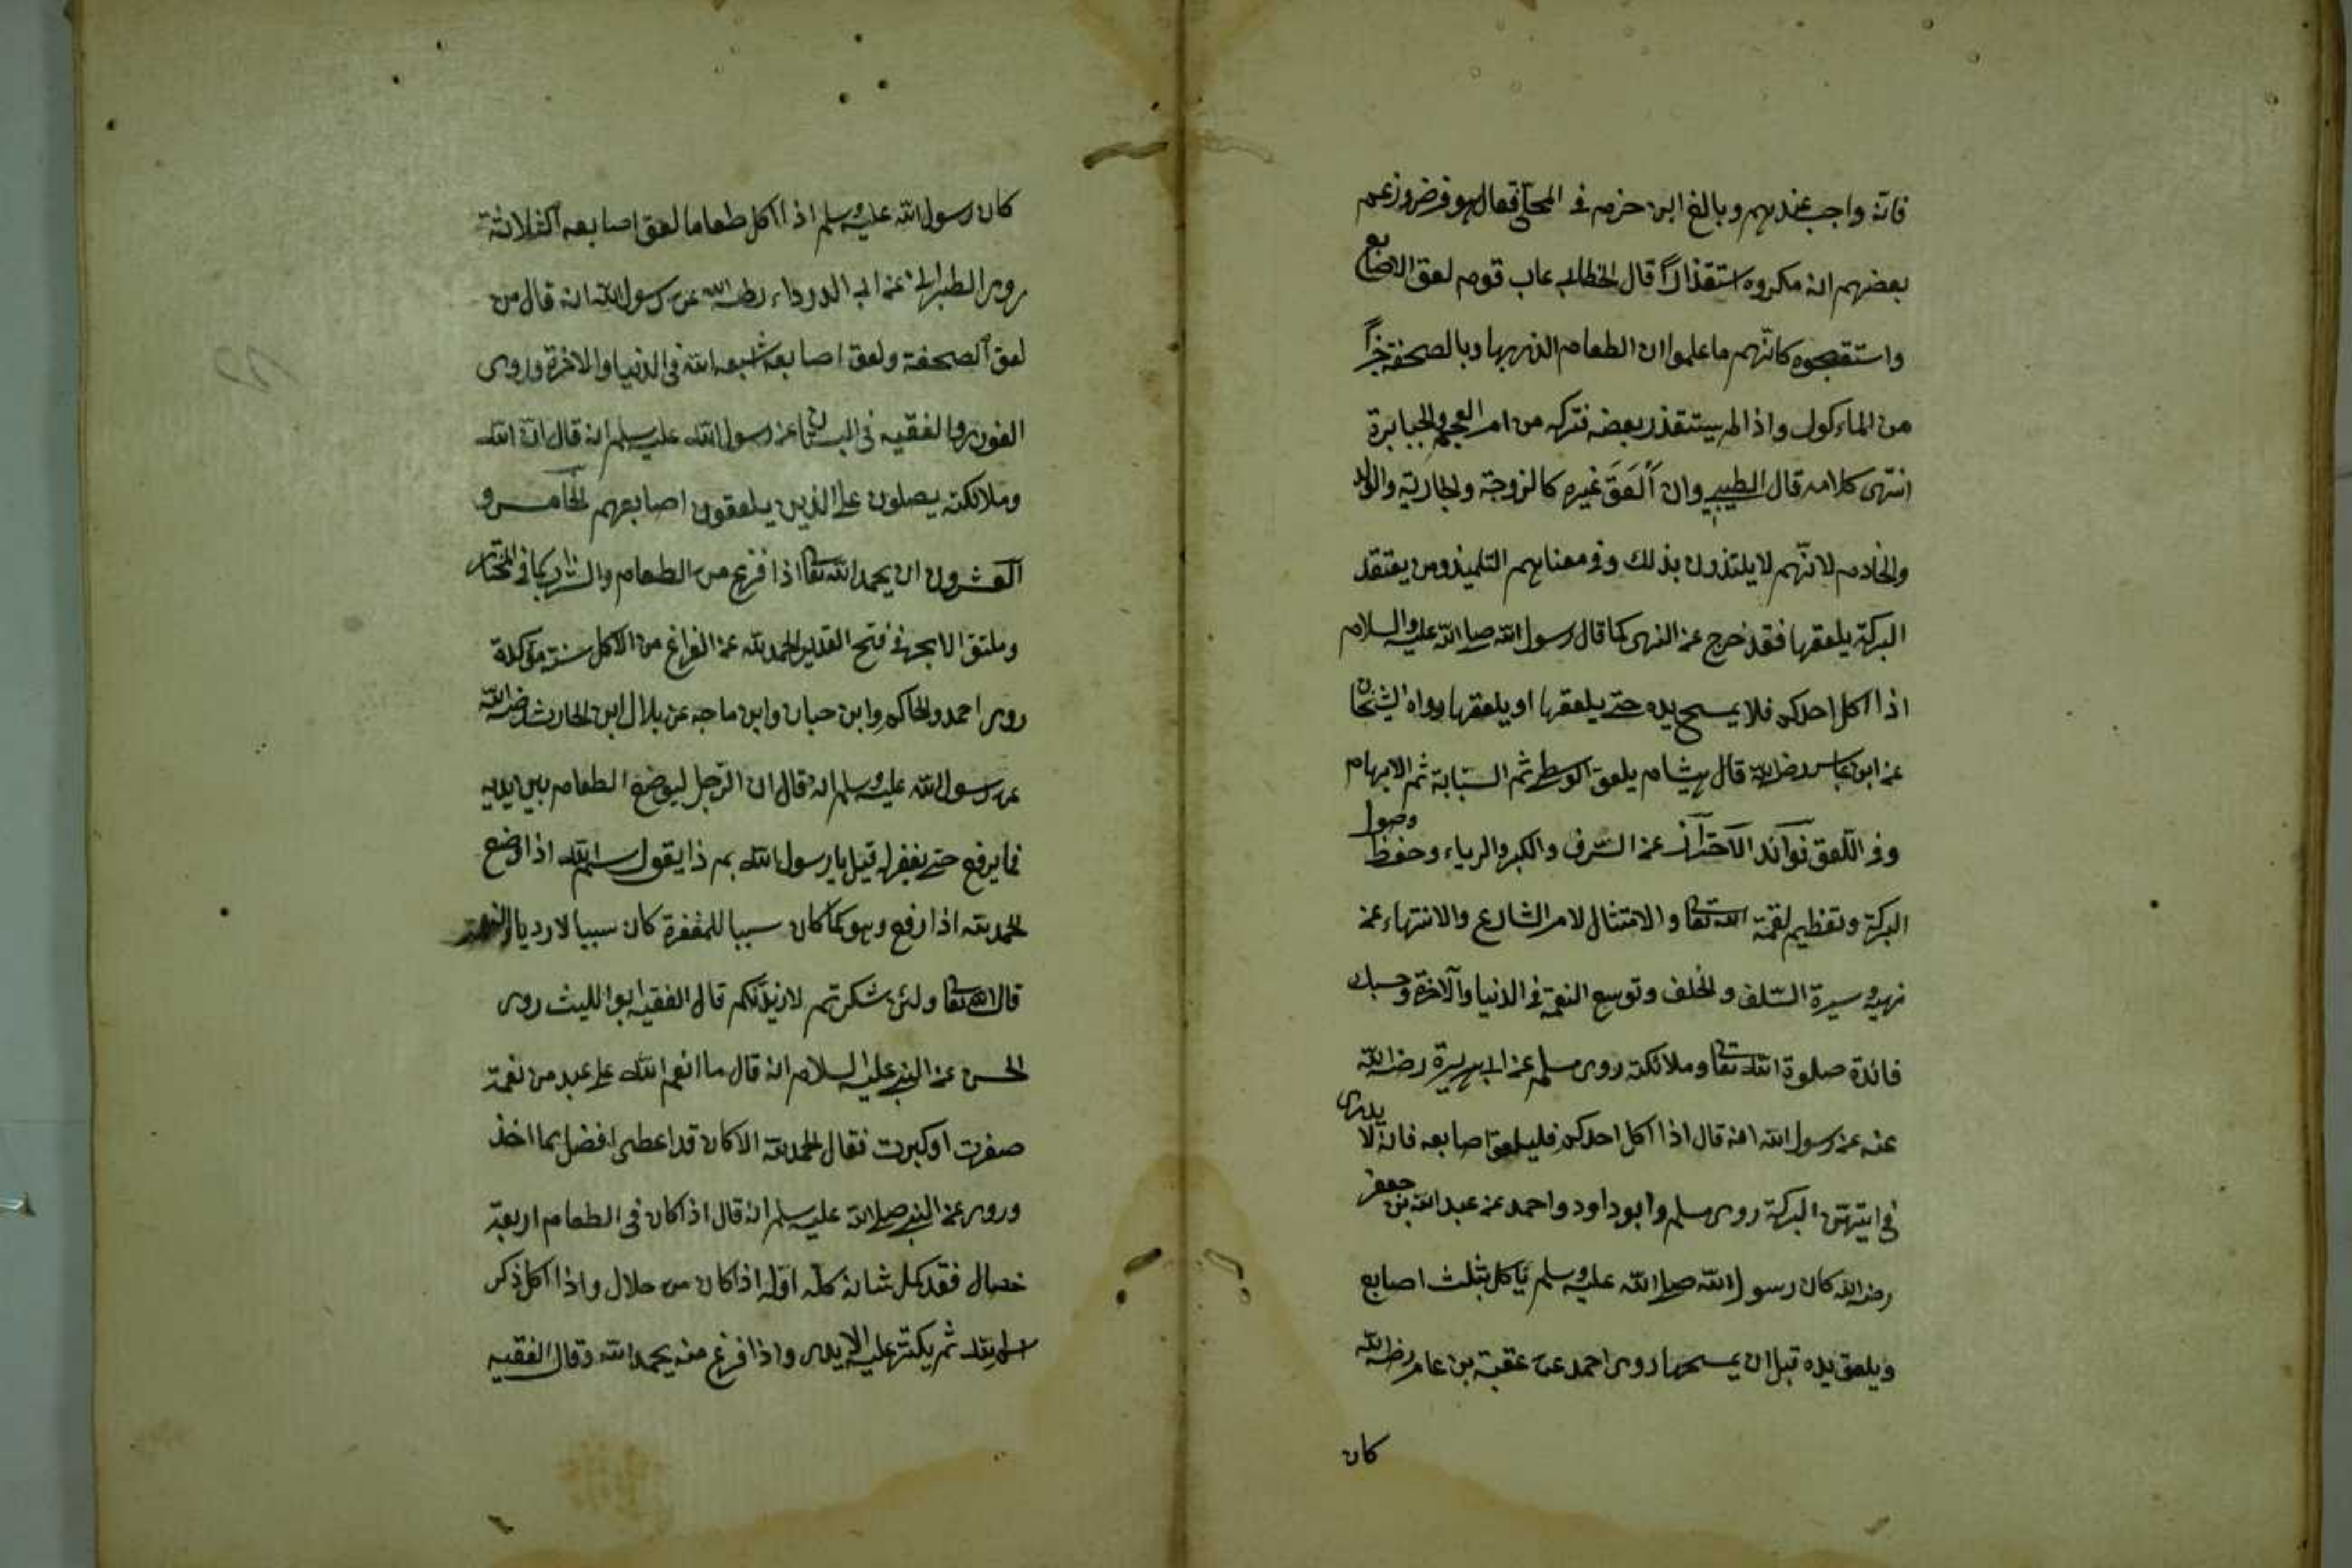 فانه واجب عندهم وبالغ ابن حزم في المحلى فقال هو فرض وزعم
بعضهم انه مكروه استقذارًا قال الخطابي عاب قوم لعق الاصابع
واستقبحوه كانّهم ما علموا ان الطعام الذي بها وبالصحفة جزأ
من الماءكول واذا لم يستقذر بعضه فتركه من امر العجم والجبابرة
انتهى كلامه قال الطيبي وان اَلْعَقَ غيره كالزوجة والجارية والولد
والخادم لانّهم لا يلتذون بذلك وفي معناهم التلميذ ومن يعتقد
البركة يلعقها فقد خرج عن النهى كما قال رسول الله صلى الله عليه والسلام
اذا اكل احدكم فلا يمسح يده حتى يلعقها او يلعقها رواه الشيخان
عن ابن عباس رضى الله قال هشام يلعق الوسطى ثم السبّابة ثم الابهام
وفي اللّعق فوآئد الاحتراز عن السّرف والكبر والرياء وحفظ وصول
البركة وتعظيم لقمة الله تعا والامتثال لامر الشارع والانتهاء عن
نهيه وسيرة السّلف والخلف وتوسع النعمة في الدنيا والآخرة وحسبك
فائدة صلوة الله تعا وملائكته روى مسلم عن ابي هريرة رضى الله
عنه عن رسول الله انه قال اذا اكل احدكم فليلعق اصابعه فانه لا يدرى
في ايتهن البركة روى مسلم وابو داود واحمد عن عبد الله بن جعفر
رضى الله كان رسول الله صلى الله عليه وسلم يأكل بثلث اصابع
ويلعق يده قبل ان يمسحها روى احمد عن عقبة بن عامر رضى الله
كان
كان رسول الله عليه وسلم اذا اكل طعاما لعق اصابعه الثلاثة
روى الطبرانى عن ابى الدرداء رضى الله عن رسول الله انه قال من
لعق الصحفة ولعق اصابعه اشبعه الله فى الدنيا والاخرة وروى
والفقيه فى البستان عن رسول الله عليه وسلم انه قال ان الله
وملائكته يصلون على الذين يلعقون اصابعهم الخامس و
العشرون ان يحمد الله تعا اذا فرغ من الطعام والشراب كما فى المختار
وملتقى الابحر فى فتح القدير الحمد لله عند الفراغ من الاكل سنة مؤكدة
روى احمد والحاكم وابن حبان وابن ماجه عن بلال ابن الحارث رضى الله
عن رسول الله عليه وسلم انه قال ان الرّجل ليوضع الطعام بين يديه
فما يرفع حتى يغفر له قيل يا رسول الله بم ذا يقول بسم الله اذا وضع
الحمد لله اذا رفع وهو كما كان سببا للمغفرة كان سببا لازدياد النعمة
قال الله تعا ولئن شكرتم لازيدنّكم قال الفقيه ابو الليث روى
الحسن عن النبي عليه السلام انه قال ما انعم الله على عبد من نعمة
صغرت او كبرت فقال الحمد لله الا كان قد اعطى افضل مما اخذ
وروى عن النبي صلى الله عليه وسلم انه قال اذا كان فى الطعام اربعة
خصال فقد كمل شانه كله اوّله اذا كان من حلال واذا اكل ذكر
اسم الله ثم يكثر عليه الايدى واذا فرغ منه يحمد الله وقال الفقيه